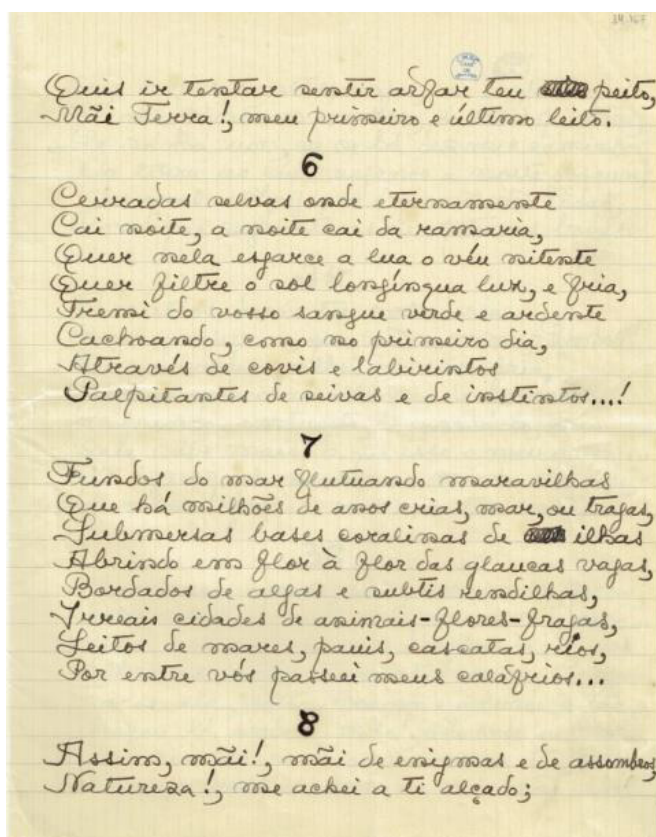 34.167
Quis ir tentar sentir arfar teu peito,
Mãi Terra!, meu primeiro e último leito.
6
Cerradas selvas onde eternamente
Cai noite, a noite cai da ramaria,
Quer nela esgarce a lua o véu nitente
Quer filtre o sol longínqua luz, e fria,
Tremi do vosso sangue verde e ardente
Cachoando, como no primeiro dia,
Através de covis e labirintos
Palpitantes de seivas e de instintos...!
7
Fundos do mar flutuando maravilhas
Que há milhões de anos crias, mar, ou tragas,
Submersas bases coralinas de ilhas
Abrindo em flor à flor das glaucas vagas,
Bordados de algas e subtis rendilhas,
Irreais cidades de animais-flores-fragas,
Leitos de mares, pauis, cascatas, rios,
Por entre vós passeei meus caláfrios...
8
Assim, mãi!, mãi de enigmas e de assombros,
Natureza!, me achei a ti alçado;